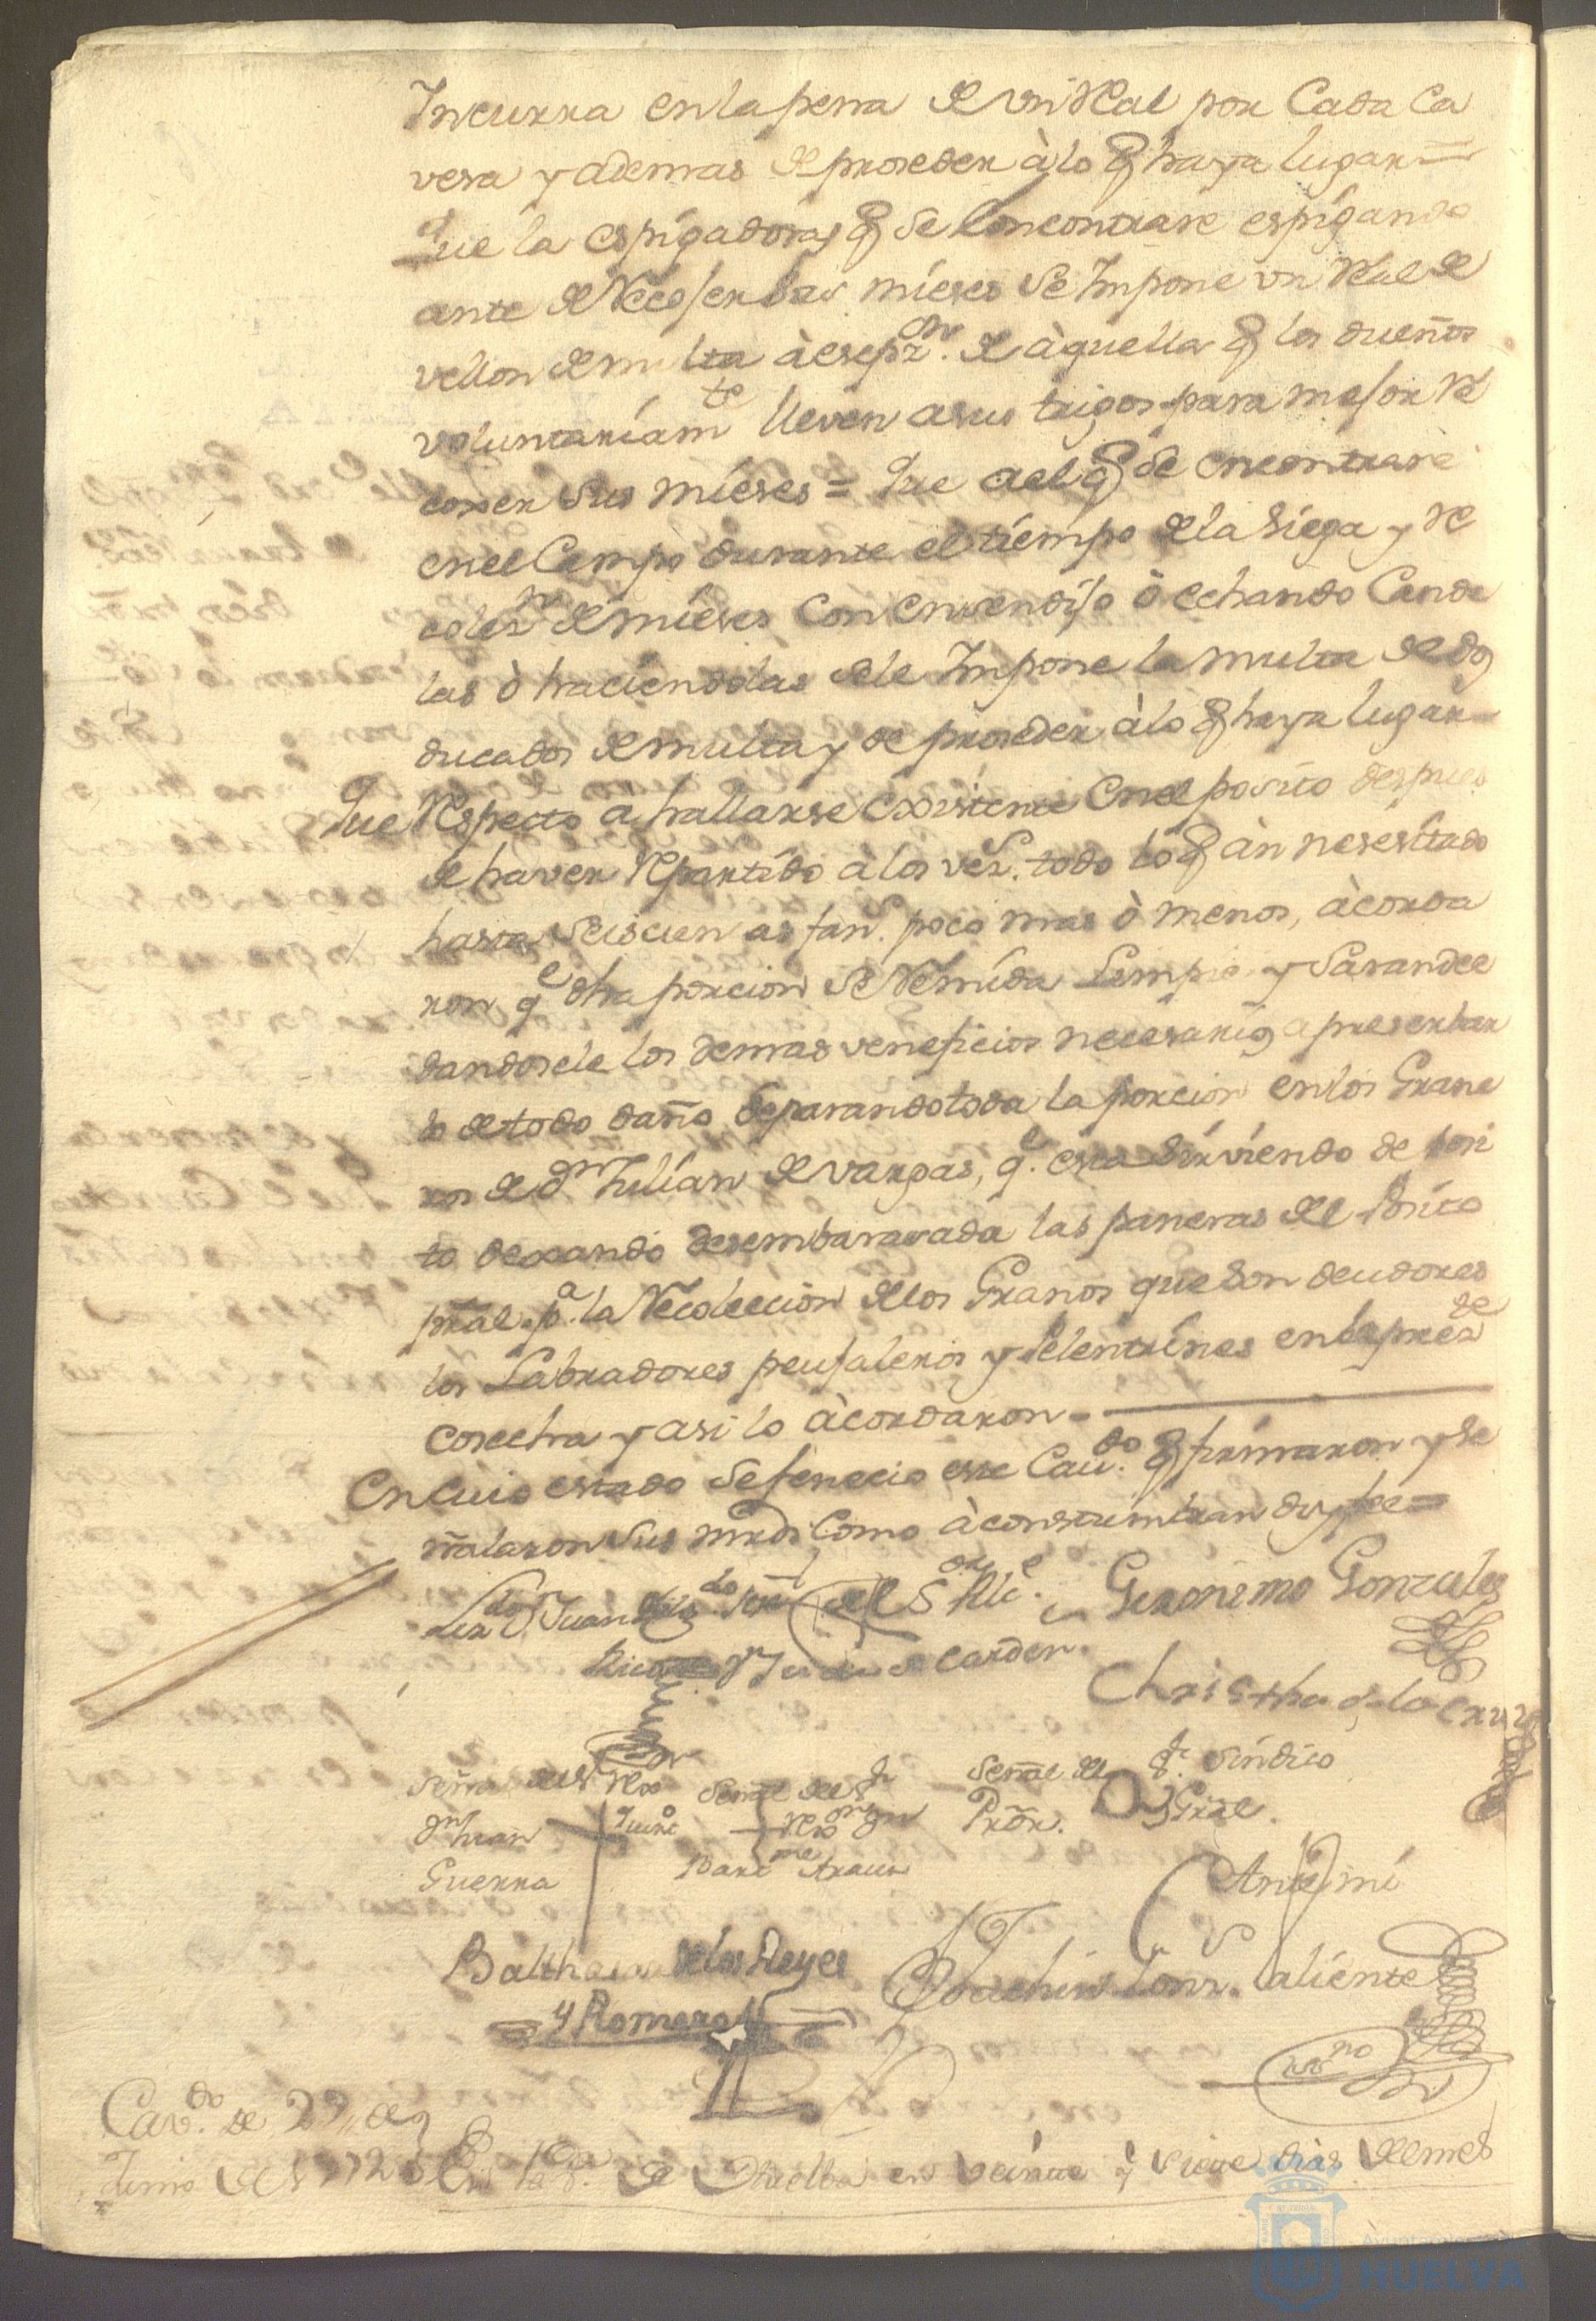 Incurra en la pena de un Real por Cada Ca
vesa y ademas de proseder à lo q haya lugar=
Que la espigadoras q se encontrare espigando
ante de Recoser las mieses se Impone un Real de
vellon de multa à esepz.on de àquella q los dueños
voluntariam.te lleven a sus trigos para mejor Re
coxer sus mieses= Que a el q se encontrare
en el Campo durante el tiempo de la siega y Re
colez.n de mieses con ensendijo ò echando Cande
las ò haciendolas se le Impone la multa de dos
ducados de multa y de proseder à lo q haya lugar=
Que Respecto a hallarse existente en el posito despues
de haver Repartido à los vez.s todo lo q àn nesesitado
hasta seiscien as fan.s poco mas ò menos, àcorda
ron q.e dha porcion se Remida Limpie y Sarandee
dandosele los demas veneficios necesarios a preserbar
lo de todo daño separando toda la porcion en los Grane
ros de D.n Julian de Vargas, q.e esta sirviendo de posi
to dexando desembarasada las paneras de el Posito
pral. p.a la Recoleccion de los Granos que son deudores
los Labradores peujaleros y Pelentrines en la prez.te
cosecha y asi lo àcordaron=
En cuio estado se fenecio este Cav.do q firmaron y se
ñalaron sus mrds como àcostumbran doy fee=
Liz.do D. Juan
del S.or Alc.e Geronimo Gonzales
de Carden.
Christhoal de la Cruz
Señal del S.r Rex Señal del S.r Señal del S.r Sindico
D.n Juan Rex.or D.n Pror. Gral.
Guerra Bart.me Araus
Ante mi
Balthasar de los Reyes Joachin Liente
y Romero
ss.no
Cav.do de 27,, de
Junio de 1772 En la V.a de Huelba en veinte y siete dias del mes
Ayuntamiento de
HUELVA